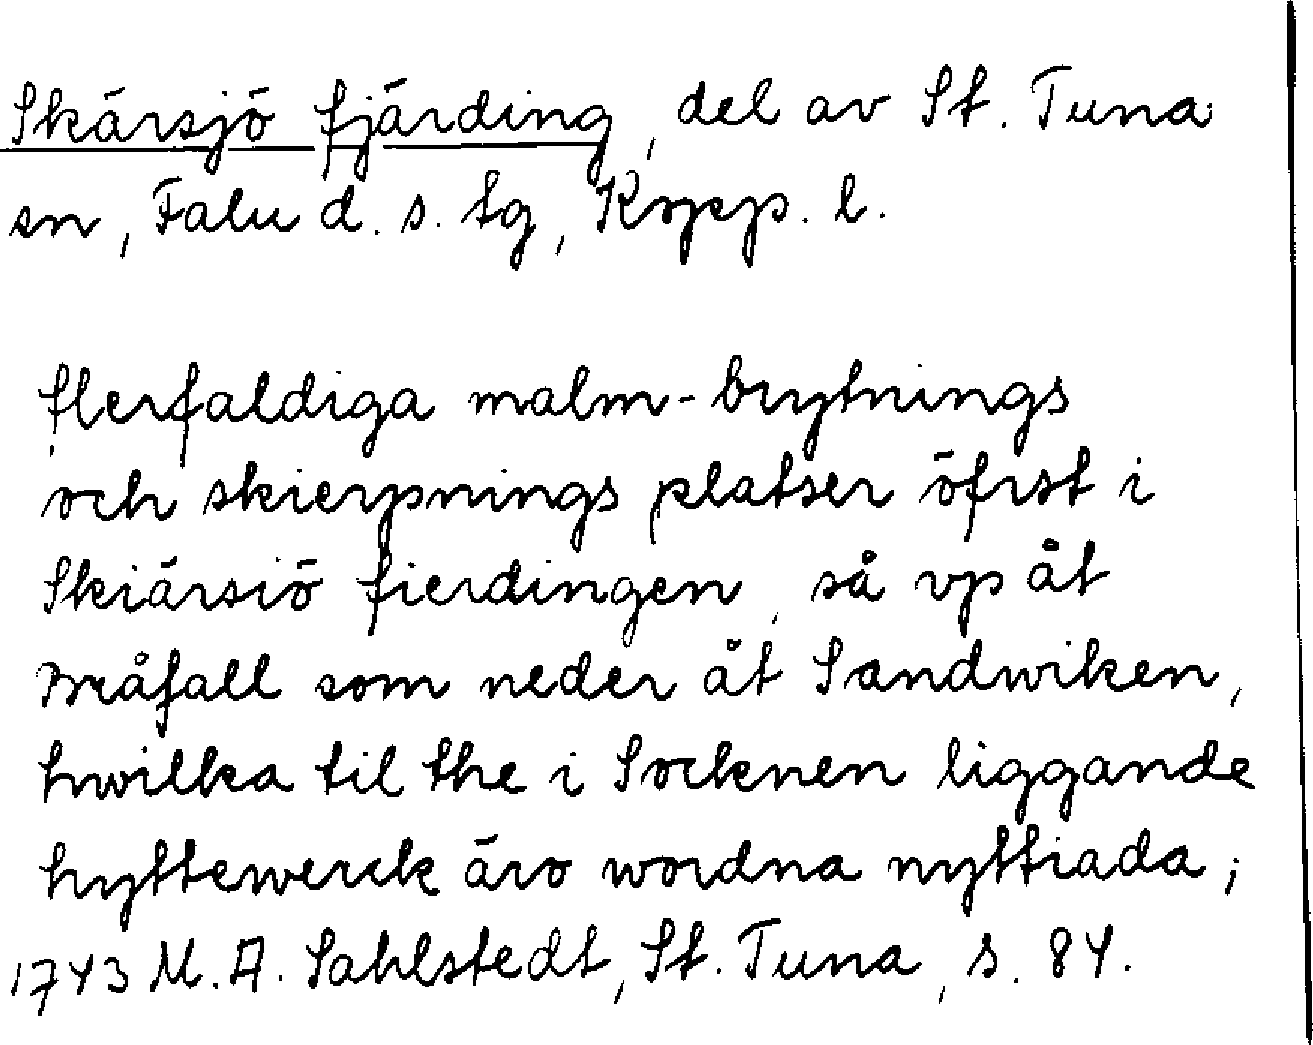 Skärsjö fjärding, del av St. Tuna
sn, Falu d. s. tg, Kopp. l.
flerfaldiga malm-brytnings
och skierpnings platser öfrst i
Skiärsiö fierdingen, så vp åt
Bråfall som neder åt Sandwiken,
hwilka til the i Socknen liggande
hyttewerck äro wordna nyttiada;
1743 M. A. Sahlstedt, St. Tuna, s. 84.